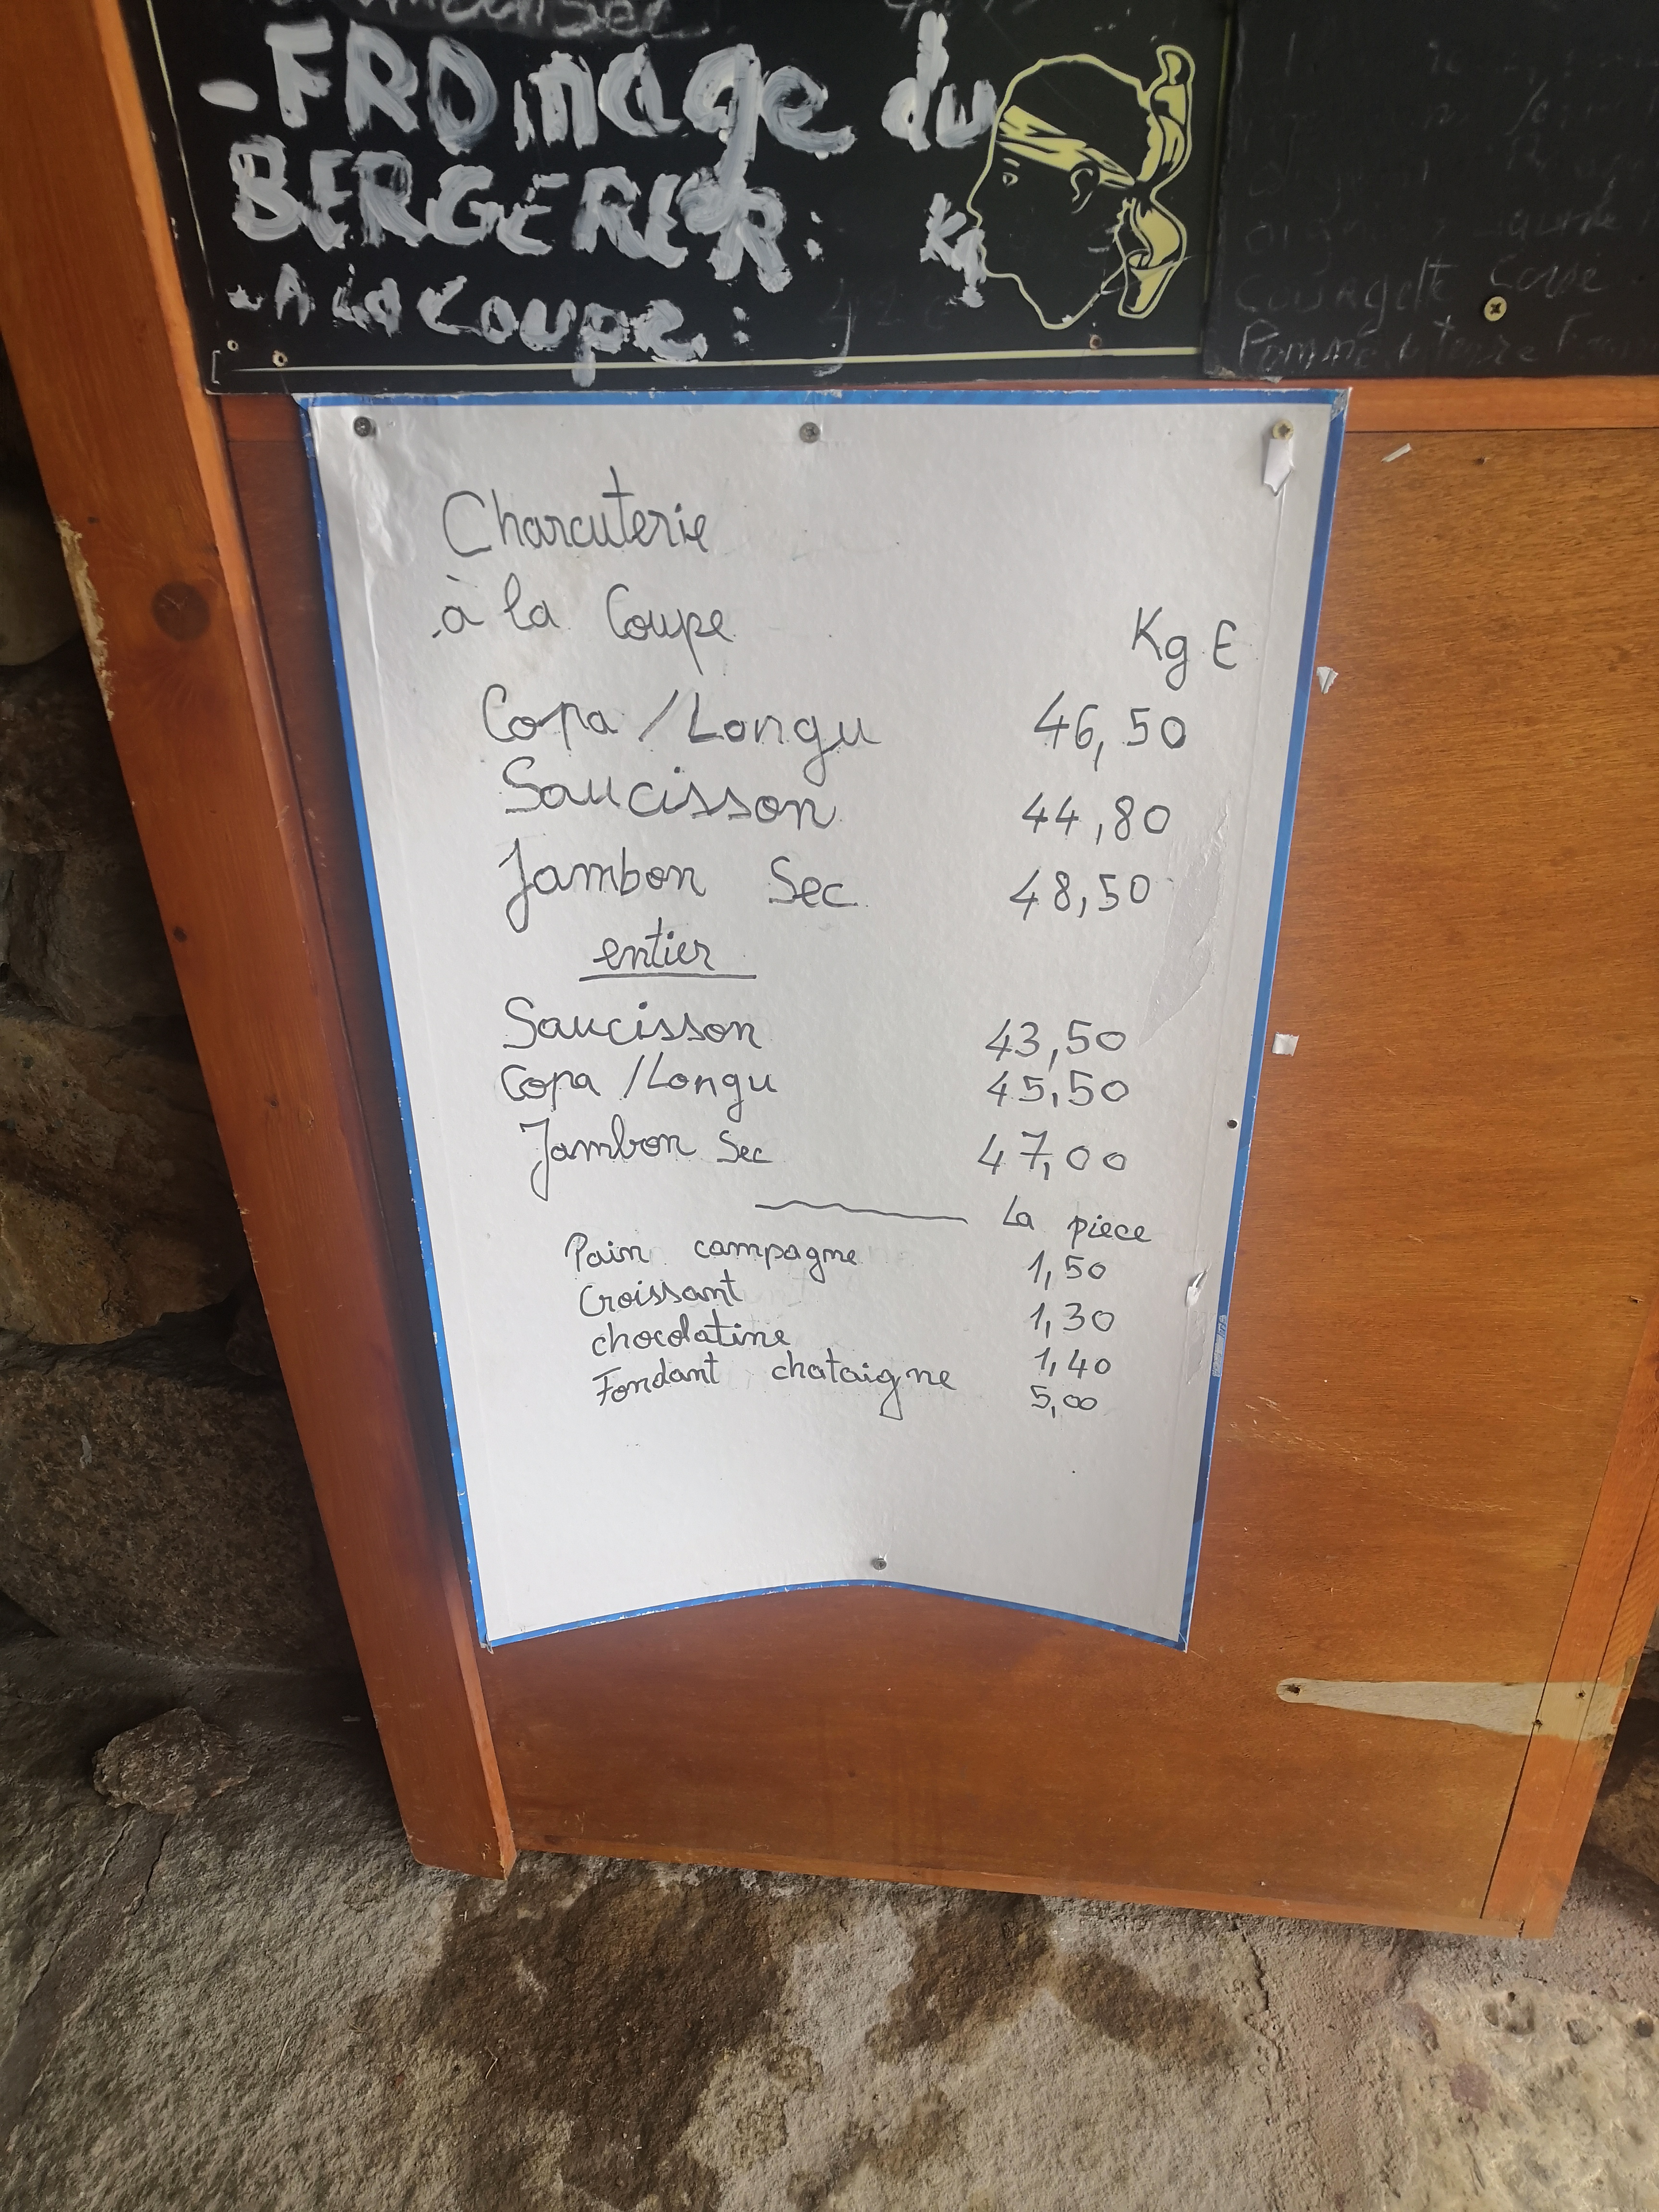 -FROmage du
BERGERER: Kg
-A la coupe:
Courgette Corse
Pomme de terre
Charcuterie
à la Coupe Kg E
Copa/Longu 46,50
Saucisson 44,80
Jambon Sec 48,50
entier
Saucisson 43,50
Copa/Longu 45,50
Jambon Sec 47,00
La piece
Pain campagne 1,50
Croissant 1,30
chocolatine 1,40
Fondant chataigne 5,00